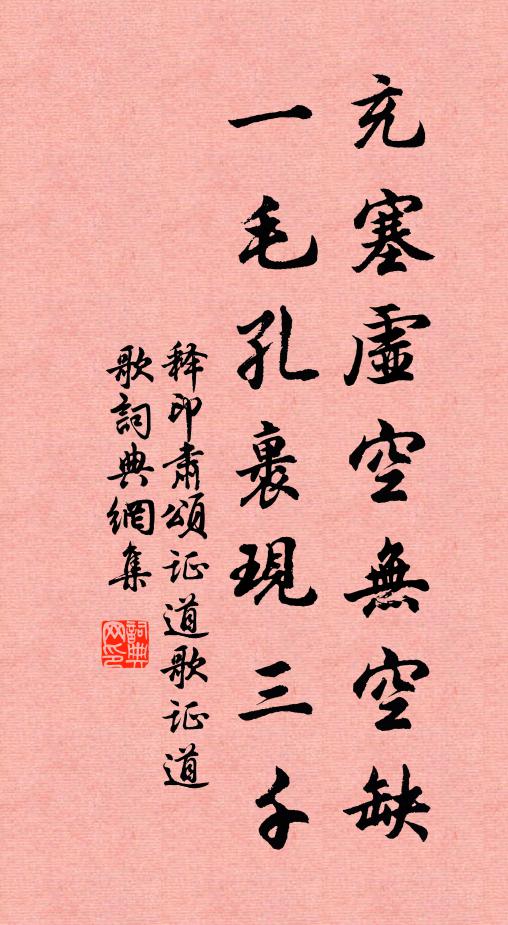 充塞虛空無空缺
一毛孔裹現三千
釋印肅頌证道歌证道
歌詞典網集
詞典网印